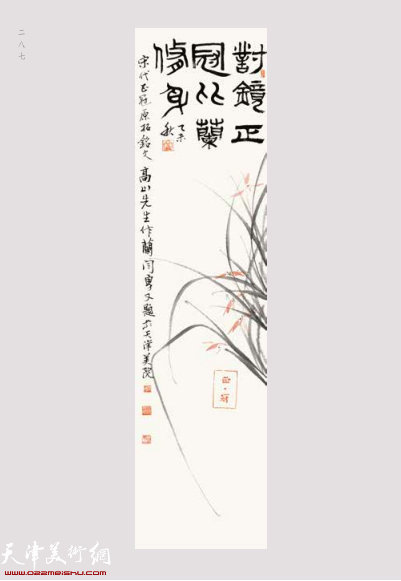 二八七
對鏡正
冠以蘭
修身
乙未
秋
宋代正冠原拓銘文
高山先生作蘭閆勇又題於天津美院
正·冠
天津美術網
www.022meishu.com